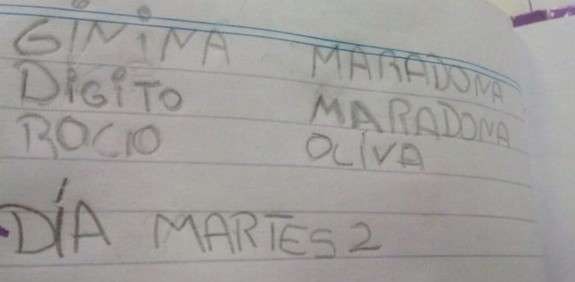 GINiNA MARADONA
DiGiTO MARADONA
ROCIO OLIVA
DÍA MARTES 2